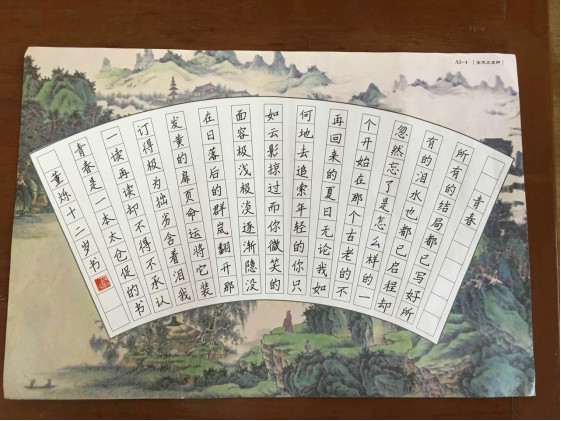 A3-4
青春
所有的结局都已写好所
有的泪水也都已启程却
忽然忘了是怎么样的一
个开始在那个古老的不
再回来的夏日无论我如
何地去追索年轻的你只
如云影掠过而你微笑的
面容极浅极淡逐渐隐没
在日落后的群岚翻开那
发黄的扉页命运将它装
订得极为拙劣含着泪我
一读再读却不得不承认
青春是一本太仓促的书
董烁十二岁书